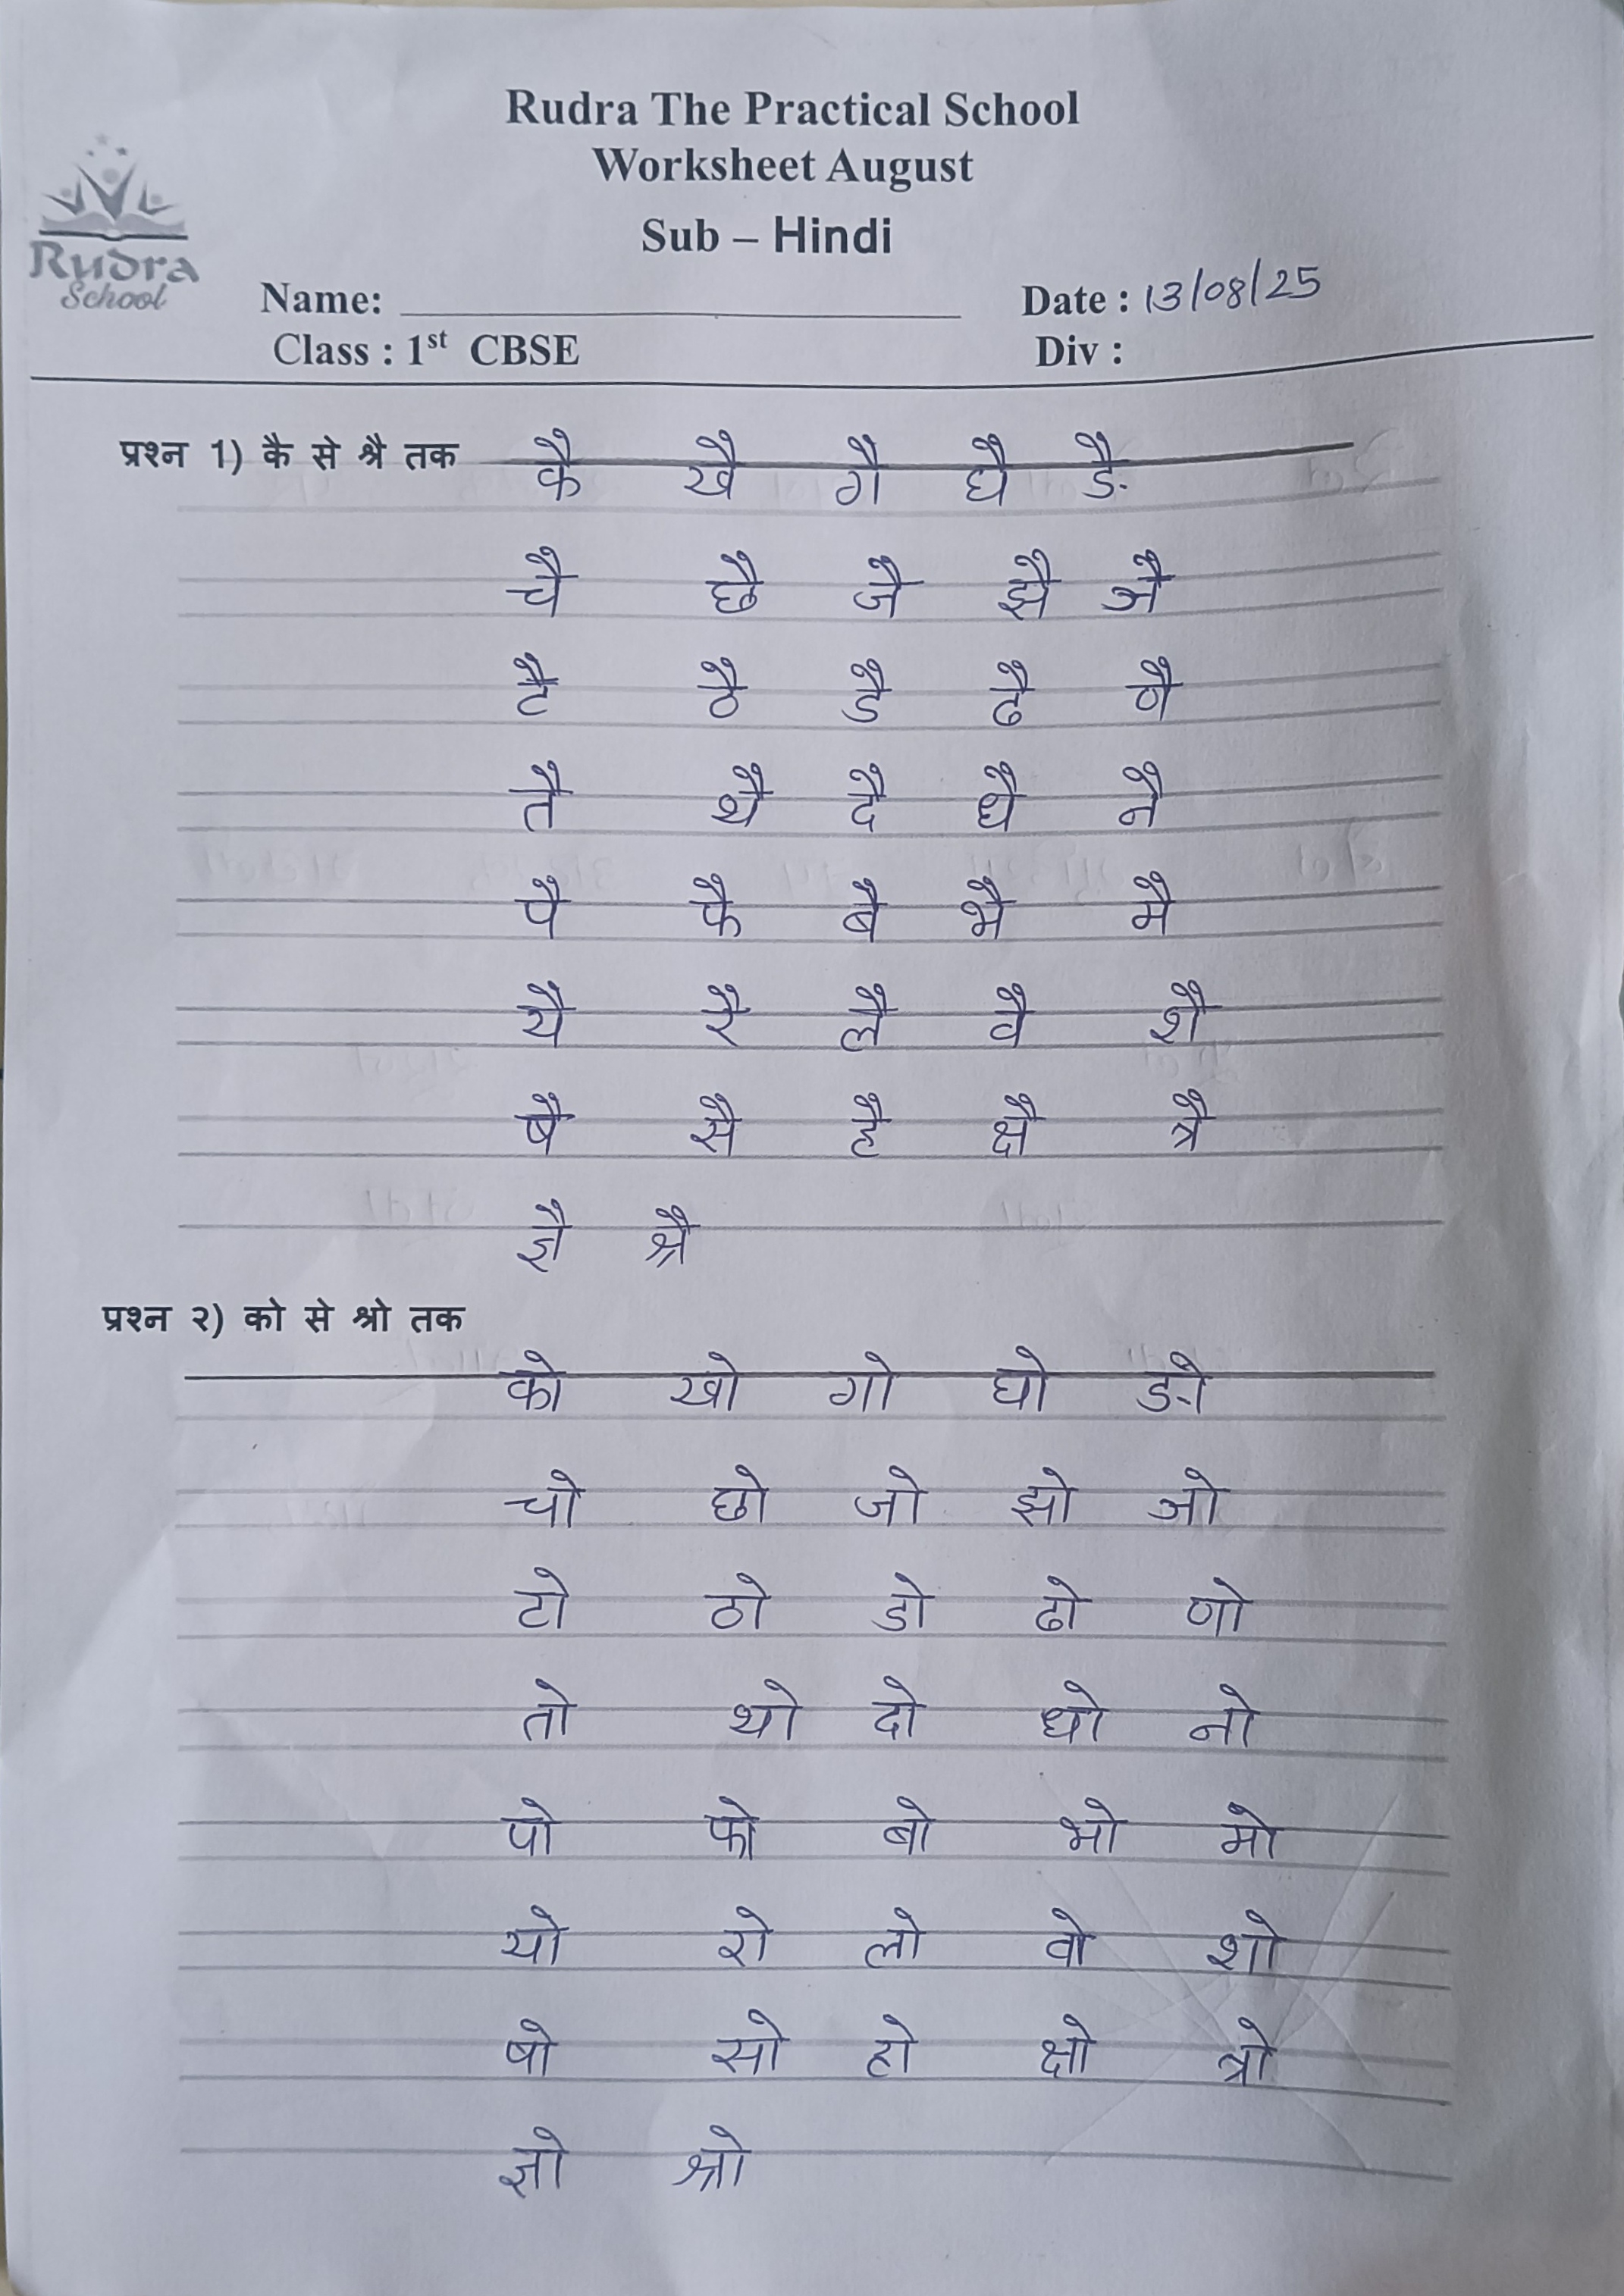 Rudra The Practical School
Worksheet August
Sub – Hindi
Rudra
School
Name: ____________________ Date : 13/08/25
Class : 1st CBSE Div :
प्रश्न 1) कै से श्रै तक कै खै गै घै ङै
चै छै जै झै ञै
टै ठै डै ढै णै
तै थै दै धै नै
पै फै बै भै मै
यै रै लै वै शै
षै सै है क्षै त्रै
ज्ञै श्रै
प्रश्न २) को से श्रो तक
को खो गो घो ङो
चो छो जो झो ञो
टो ठो डो ढो णो
तो थो दो धो नो
पो फो बो भो मो
यो रो लो वो शो
षो सो हो क्षो त्रो
ज्ञो श्रो